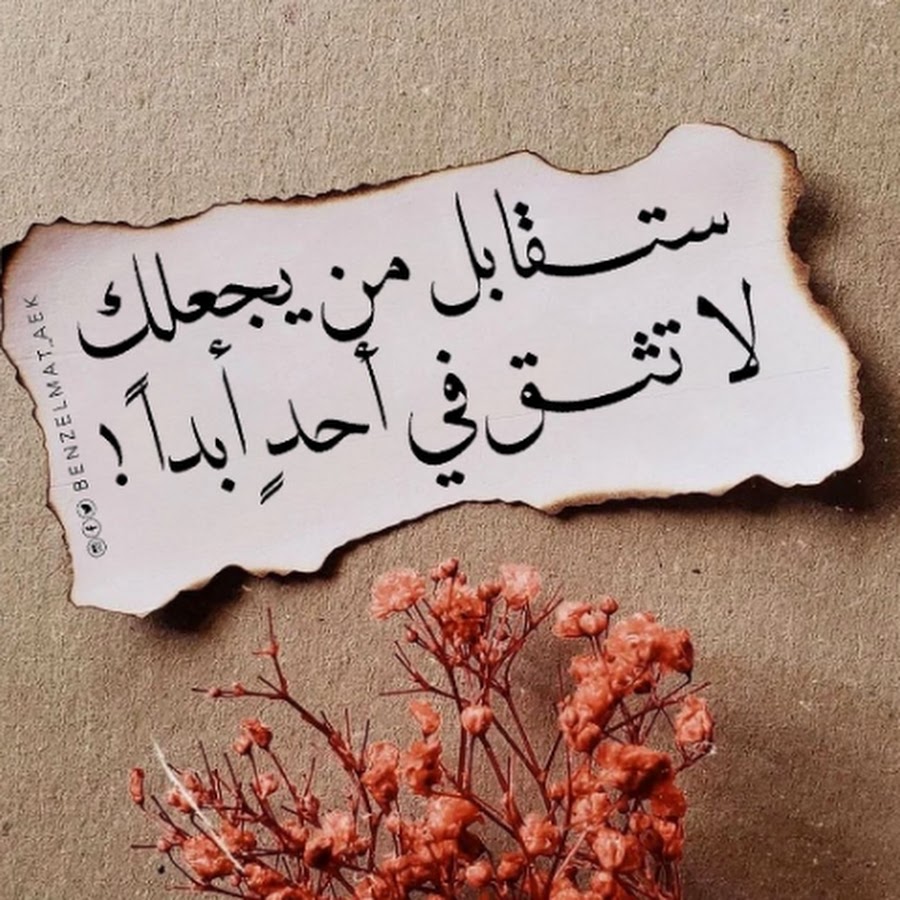 ستقابل من يجعلك
لا تثق في أحدٍ أبداً !
BENZELMAT.AEK